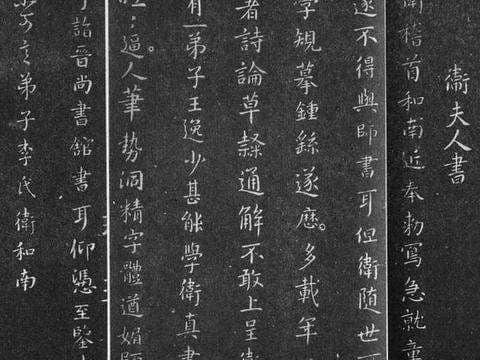 衛夫人書
稽首和南近奉勑寫急就章
遂不得與師書耳但衛隨世
學規摹鍾繇遂歷多載年
著詩論草隸通解不敢上呈衛
有一弟子王逸少甚能學衛真書
咄咄逼人筆勢洞精字體遒媚
詣晉尚書館書耳仰憑至鑒
弟子李氏衛和南